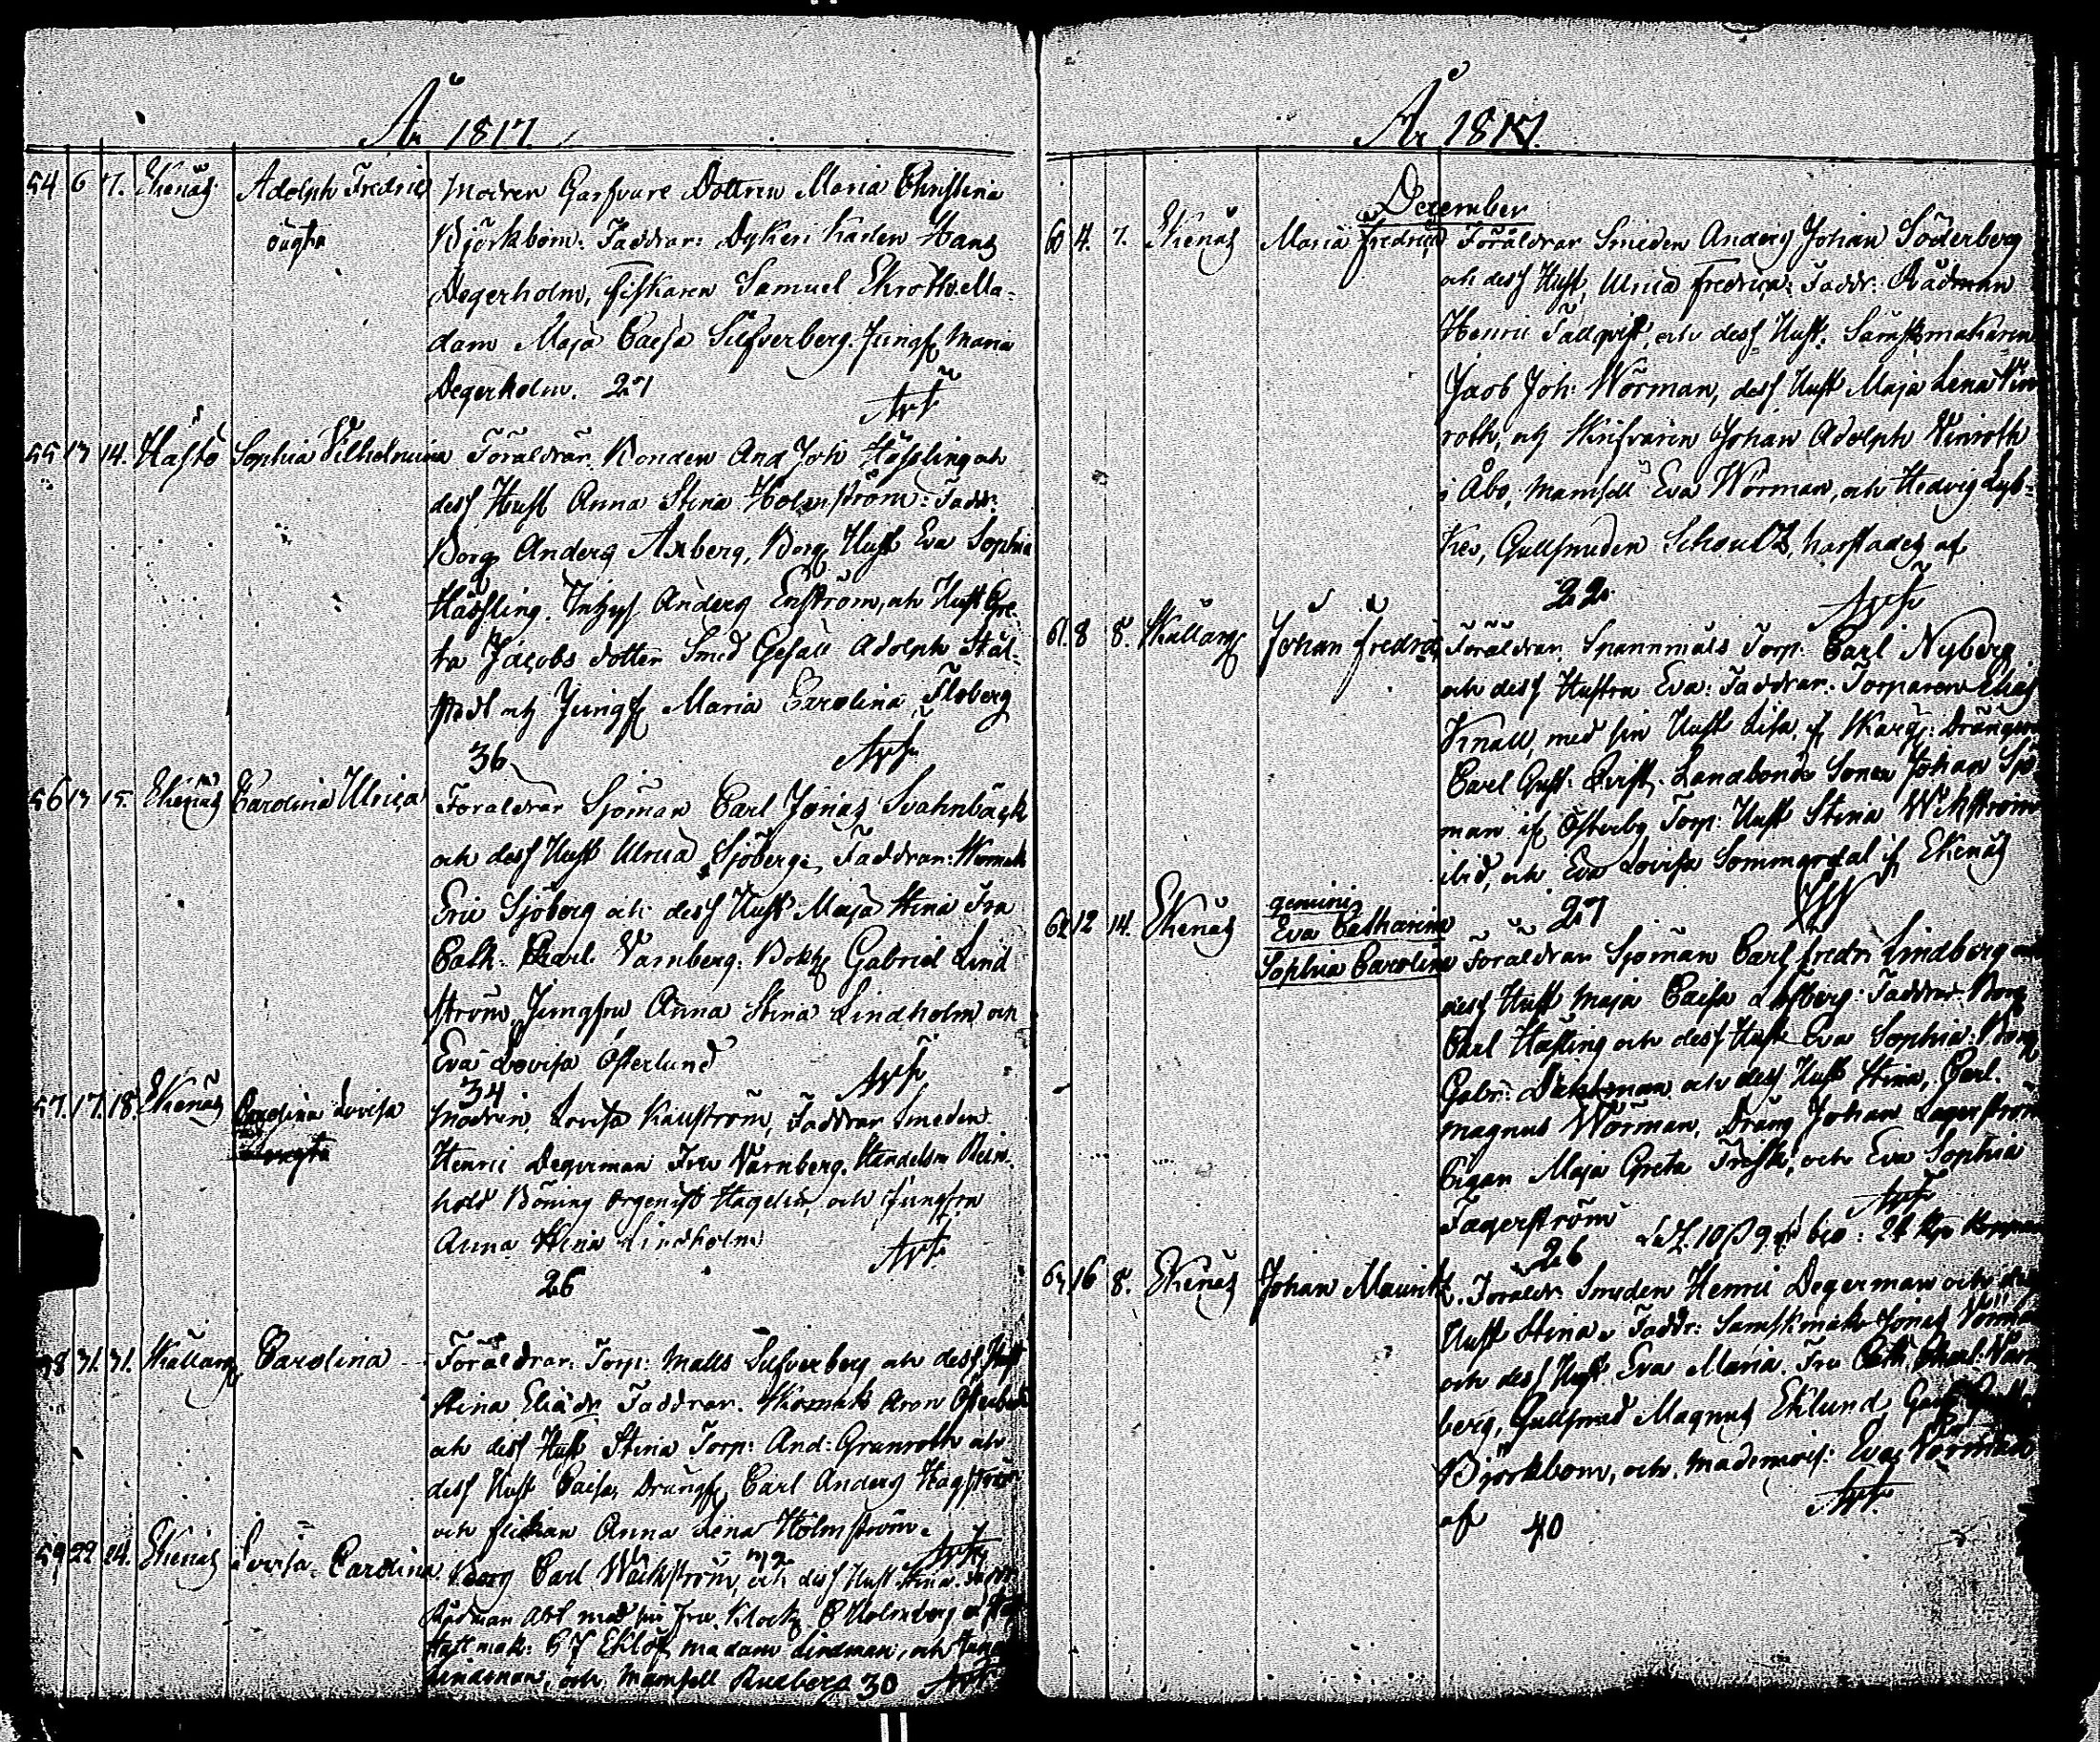 År 1817.
54 6 7. Ekenäs Adolph Fredric Modren Garfvare Dottren Maria Christina
ougta Björkbom. Faddrar: Dykeri Karlen Hans
Degerholm, fiskaren Samuel Ekroth. Ma-
dam Maja Caisa Silfverberg. Jungf Maria
Degerholm. 27
55 13 14. Hästö Sophia Vilhelmina Föräldrar Bonden And Joh Hässling och
dess Hust Anna Stina Holmström: Fadd:
Borg Anders Axberg, Borg Hust Eva Sophia
Hässling. Anders Enström, och Hust Gre-
ta Jacobs dotter Smed Gesäll Adolph Stål-
och Jungf Maria Carolina Floberg
36
56 13 15. Ekenäs Carolina Ulrica Föräldrar Sjöman Carl Jonas Svahnbäck
och dess Hust Ulrica Sjöberg: Faddrar: Skomak
Eric Sjöberg och dess Hust Maja Stina Fru
Cath: Charl. Varnberg. Gabriel Lind
ström, Jungfru Anna Stina Lindholm och
Eva Lovisa Österlund
34
57. 17. 18. Ekenäs Carolina Lovisa Modren, Lovisa Kallström, Faddrar Smeden
Henric Degerman Fru Varnberg. Handelsm Rein-
hold Böning Orgenist Hagelin, och Jungfru
Anna Stina Lindholm
26
58 31. 31. Skallarg Carolina Föräldrar: Torp: Matts Silfverberg och dess Hust
Stina Eliadr Faddrar. Skomak Aron
och dess Hust Stina Torp: And: Grunroth och
dess Hust Caisa, Drängf Carl Anders Hagström
och flickan Anna Lena Holmström.
59 22 24. Ekenäs Lovisa Carolina. Borg Carl Wäckström, och dess Hust Stina.
Rådman med sin Fru. Klock Holmberg
Hattmak: Eklöf, madam Lindman, och
Lindman, och Mamsell Rueberg 30
År 1817.
December
60 4. 7. Ekenäs Maria Fredrica Föräldrar Smeden Anders Johan Söderberg
och dess Hust, Ulrica Fredrica: Faddr: Rådman
Henric Tallqvist, och dess Hust. Sämskmakaren
Jacob Joh: Wörman, dess Hust Maja Lena Vin
roth, och Johan Adolph Vinroth
i Åbo, Mamsell Eva Wörman, och Hedvig Lyb-
Gullsmeden Schoultz, af
22
61. 8 8. Skallarg Johan Fredric Föräldrar, Spannmåls Torp. Carl Nyberg
och dess Hustru Eva: Faddrar. Torparen Elias
med sin Hust Lisa, Drängen
Carl Gust: Qvist, Landbonde Sonen Johan Sjö
man if Österby Torp: Hust Stina
ibid, och Eva Lovisa if Ekenäs
27
62 12 14. Ekenäs gemini
Eva Catharina
Sophia Carolina Föräldrar Sjöman Carl Fredr: Lindberg och
dess Hust Maja Caisa Faddrar. Borg
Carl Hässling och dess Hust Eva Sophia: Borg
Gabr: och dess Hust Stina, Carl
Magnus Wörman, Dräng Johan Lagerström
Pigan Maja Greta Frisk, och Eva Sophia
Fagerström
26
63 16 8. Ekenäs Johan Mauritz. Föräldr: Smeden Henric Degerman och dess
Hust Stina. Faddr: Sämskmak Jonas Wörman
och dess Hust Eva Maria. Fru Cath: Charl: Varn
berg, Gullsmed Magnus Eklund
Björkbom, och mademois: Eva Wörman
af 40